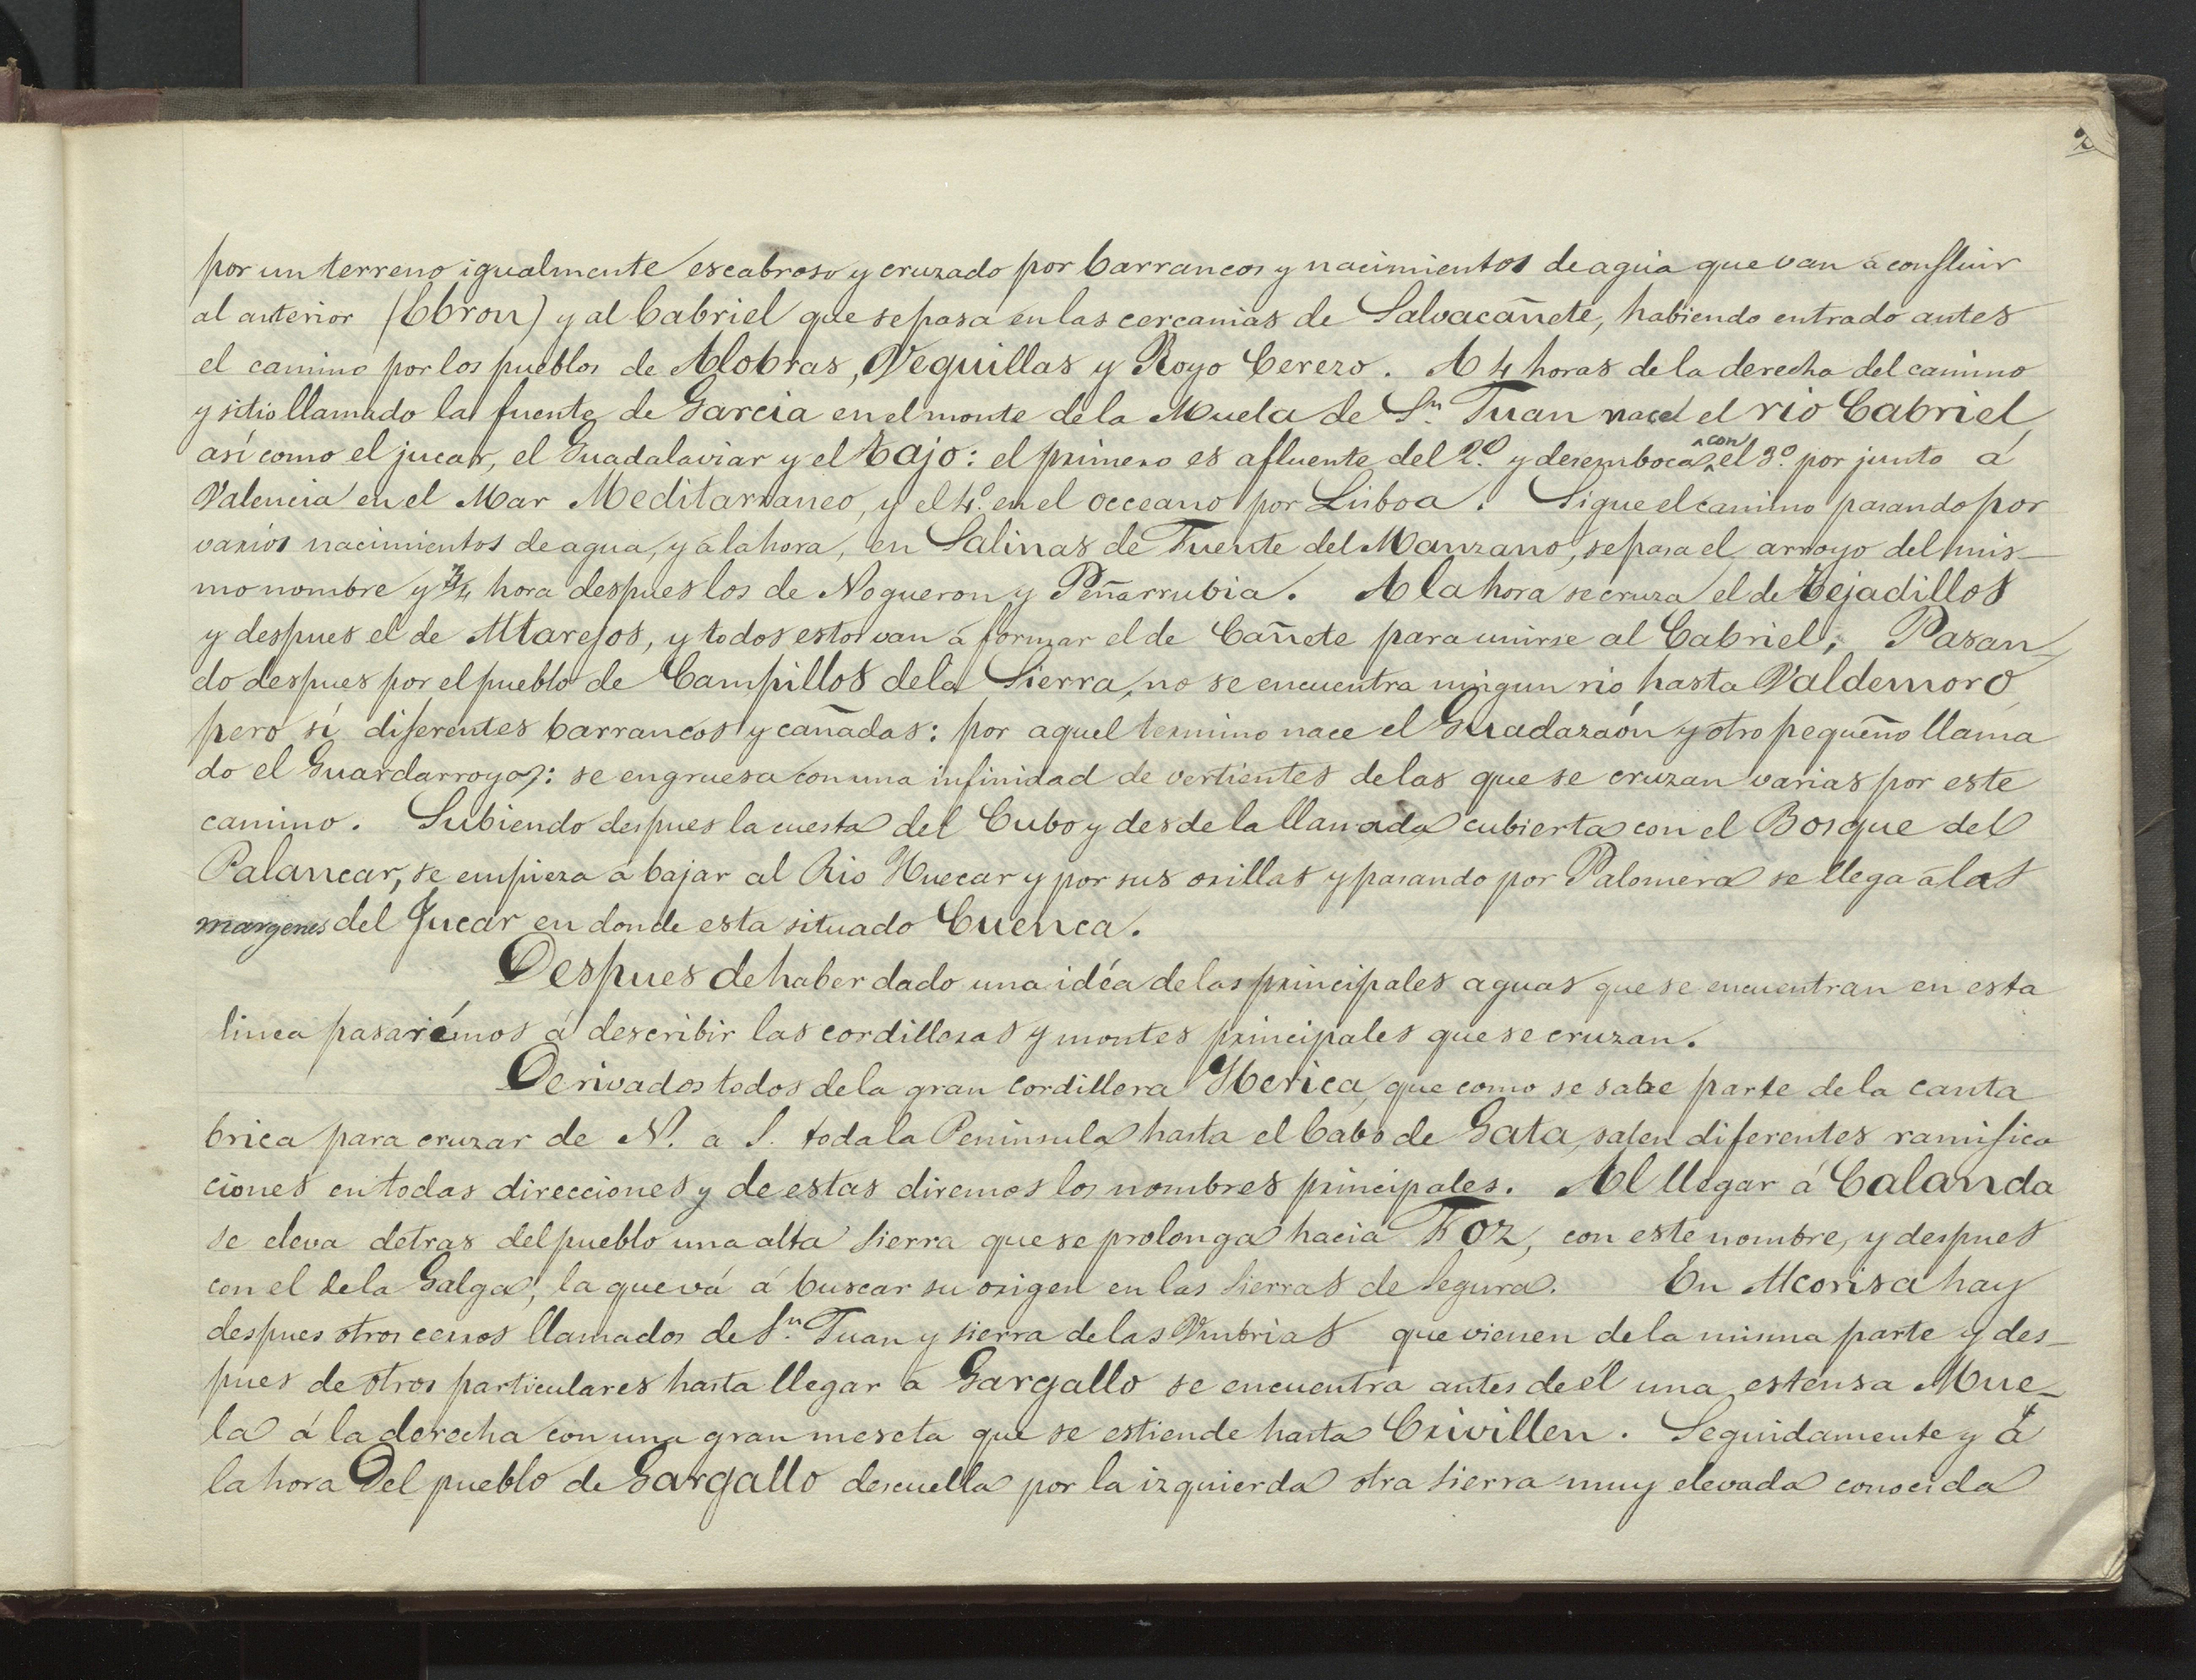 2
por un terreno igualmente escabroso y cruzado por barrancos y nacimientos de agua que van á confluir
al anterior (Ebron) y al Cabriel que se pasa en las cercanias de Salvacañete, habiendo entrado antes
el camino por los pueblos de Alobras, Veguillas y Royo Cerezo. A 4 horas de la derecha del camino
y sitio llamado la fuente de Garcia en el monte de la Muela de Sn. Juan nace el rio Cabriel
así como el jucar, el Guadalaviar y el Tajo: el primero es afluente del 2º y desemboca con el 3º por junto á
Valencia en el Mar Meditarraneo, y el 4º en el occeano por Lisboa. Sigue el camino pasando por
varios nacimientos de agua, y á la hora, en Salinas de Fuente del Manzano, se pasa el arroyo del mis-
mo nombre y 3/4 hora despues los de Nogueron y Peñarrubia. A la hora se cruza el de Tejadillos
y despues el de Mtarejos, y todos estos van á formar el de Cañete para unirse al Cabriel; Pasan-
do despues por el pueblo de Campillos de la Sierra, no se encuentra ningun rio hasta Valdemoro
pero sí diferentes barrancos y cañadas: por aquel termino nace el Guadazaón y otro pequeño llama
do el Guardarroyos: se engruesa con una infinidad de vertientes de las que se cruzan varias por este
camino. Subiendo despues la cuesta del Cubo y desde la llanada cubierta con el Bosque del
Palancar, se empieza á bajar al Rio Huecar y por sus orillas y pasando por Palomera se llega á las
margenes del Jucar en donde esta situado Cuenca.
Despues de haber dado una idéa de las principales aguas que se encuentran en esta
linea pasarémos á describir las cordilleras y montes principales que se cruzan.
Derivados todos de la gran cordillera Yberica, que como se sabe parte de la canta
brica para cruzar de N. a S. toda la Peninsula hasta el Cabo de Gata, salen diferentes ramifica
ciones en todas direcciones y de estas diremos los nombres principales. Al llegar á Calanda
se eleva detras del pueblo una alta sierra que se prolonga hacia Foz, con este nombre, y despues
con el de la Galga, la que vá á buscar su origen en las sierras de Segura. En Alcorisa hay
despues otros cerros llamados de Sn. Juan y sierra de las Umbrias que vienen de la misma parte y des-
pues de otros particulares hasta llegar á Gargallo se encuentra antes de él una estensa Mue-
la á la derecha con una gran meseta que se estiende hasta Crivillen. Seguidamente y á
la hora Del pueblo de Gargallo descuella por la izquierda otra sierra muy elevada conocida